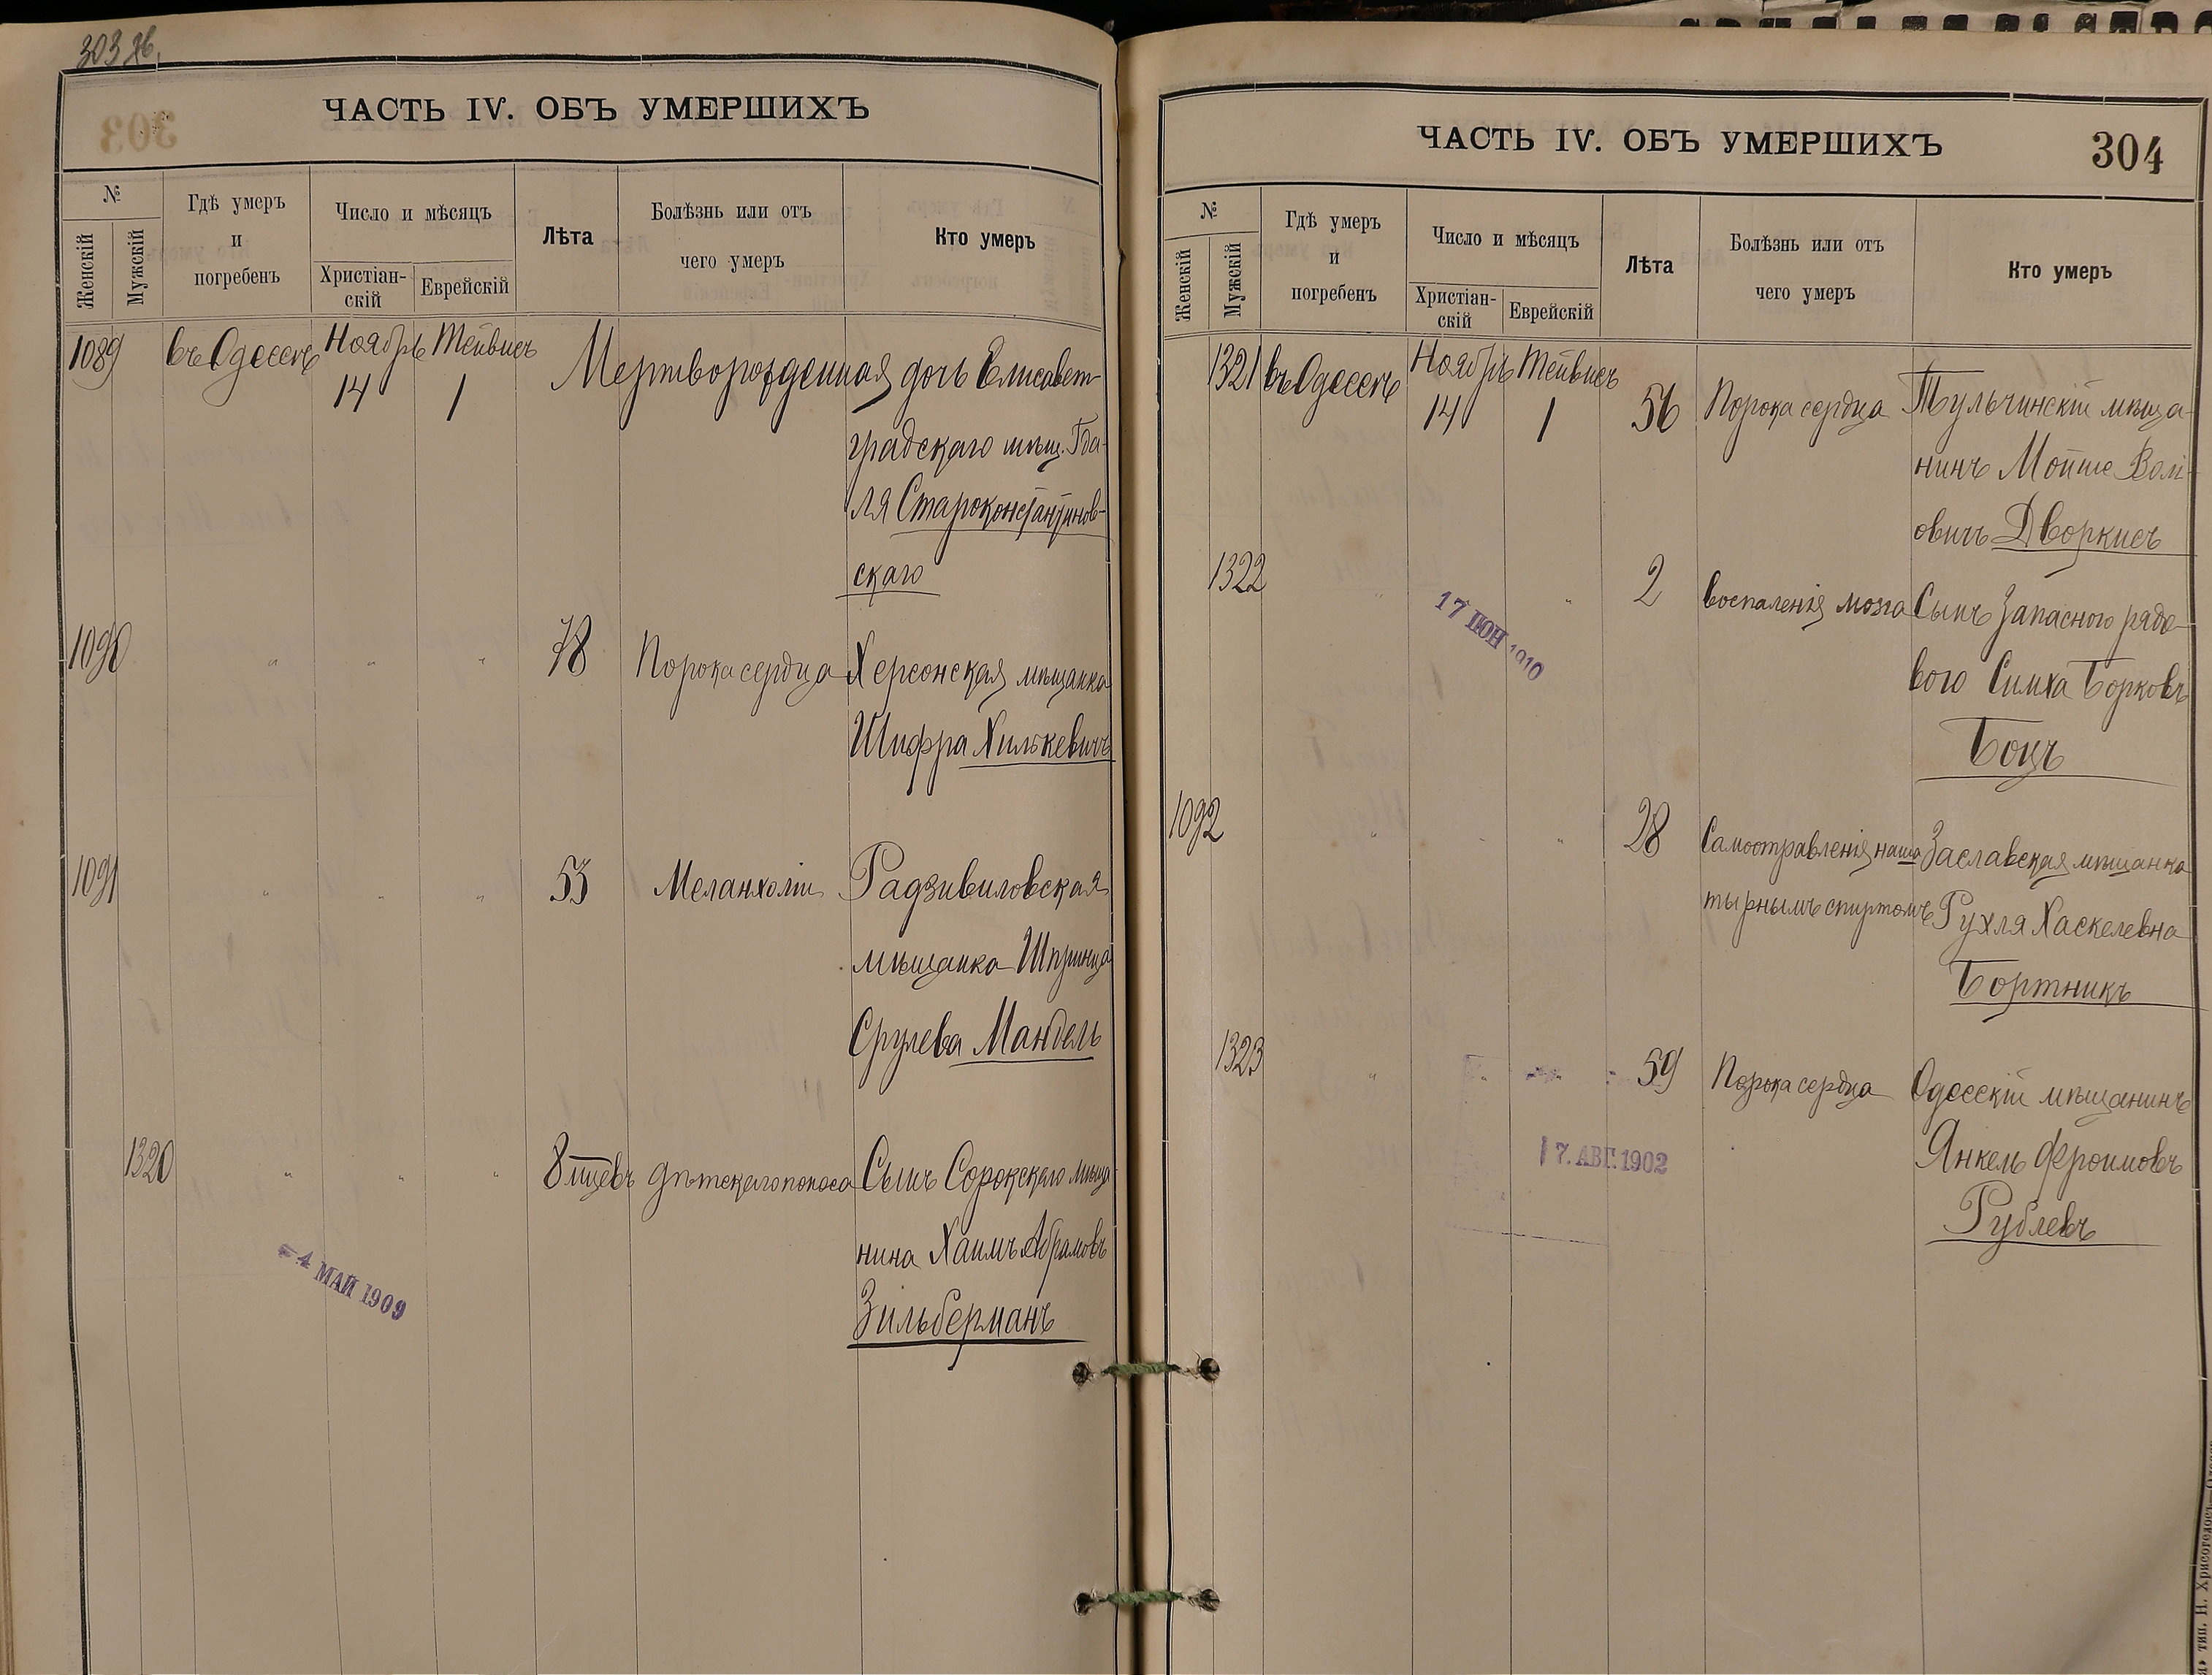 303 об.
303
ЧАСТЬ IV. ОБЪ УМЕРШИХЪ
№
Женскій
Мужскій
Гдѣ умеръ
и
погребенъ
Число и мѣсяцъ
Христіан-
скій
Еврейскій
Лѣта
Болѣзнь или отъ
чего умеръ
Кто умеръ
1089 въ Одессѣ Ноябрь Тейвисъ Мертворожденная дочь Елисавет-
14 1
градскаго мѣщ. Гда-
ля Староконстантинов-
скаго
1090 " " " 78 Порока сердца Херсонская мѣщанка
Шифра Хилькевичъ
1091 " " " 53 Меланхоліи Радзивиловская
мѣщанка Шпринца
Срулева Мандель
1320 " " " 8 мцевъ дѣтскаго поноса Сынъ Сорокскаго мѣща-
нина Хаимъ Абрамовъ
Зильберманъ
- 4 МАЙ 1909
ЧАСТЬ IV. ОБЪ УМЕРШИХЪ
304
№
Женскій
Мужскій
Гдѣ умеръ
и
погребенъ
Число и мѣсяцъ
Христіан-
скій
Еврейскій
Лѣта
Болѣзнь или отъ
чего умеръ
Кто умеръ
1321 въ Одессѣ Ноябрь Тейвисъ
14 1 56 Порока сердца Тульчинскій мѣща-
нинъ Мойше
овичъ Дворкисъ
1322 " " 2 Воспаленія мозга Сынъ запасного рядо-
вого Симха Борковъ
Боцъ
17 ІЮН 1910
1092 " " " 28 Самоотравленія наша- Заславская мѣщанка
тырнымъ спиртомъ Рухля Хаскелевна
Бортникъ
1323 " " " 59 Порока сердца Одесскій мѣщанинъ
Янкель Фроимовъ
Рублевъ
17. АВГ. 1902
тип. Н. Хрисогелосъ—Одесса